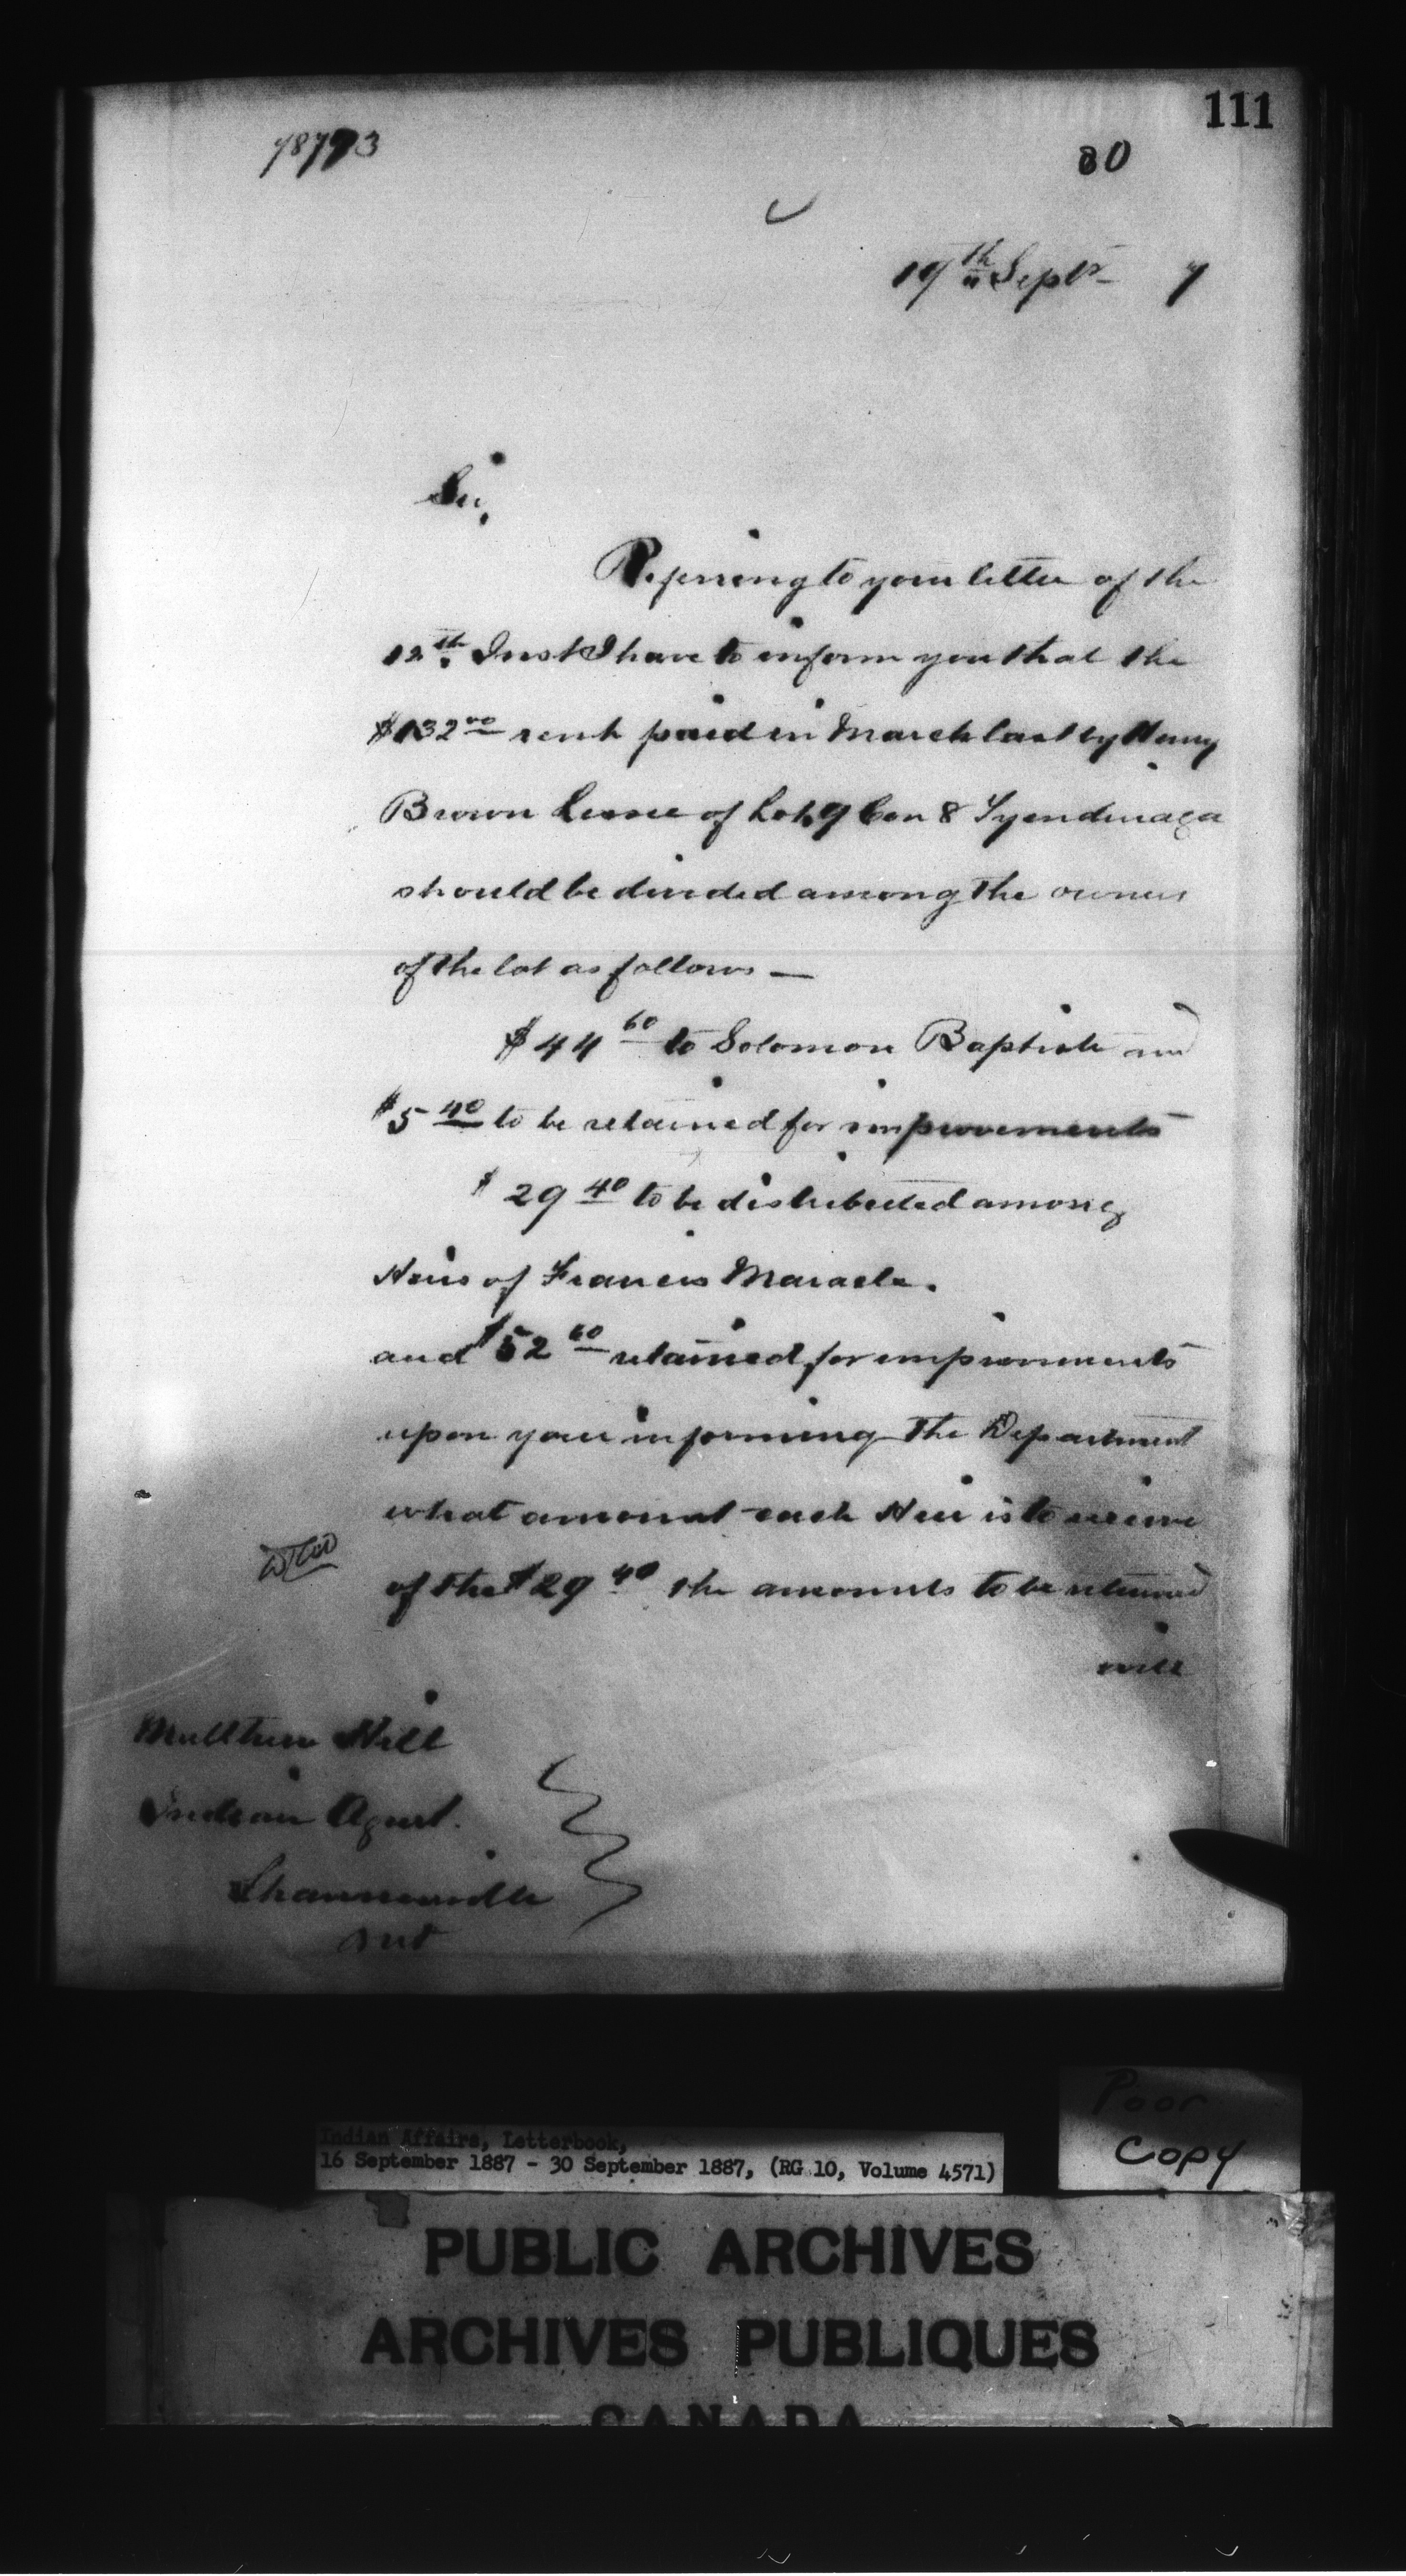 111
78793
30
19th Septr 7
Sir,
Referring to your letter of the
12th Inst I have to inform you that the
$132.00 rent paid in March last by Henry
Brown Lessee of Lot 9 Con 8 Tyendinaga
should be divided among the owners
of the lot as follows —
$44 60 to Solomon Baptiste and
$5 40 to be retained for improvements
$29 40 to be distributed among
Heirs of Francis Maracle.
and $52 60 retained for improvements
upon your informing the Department
what amount each Heir is to receive
of the $29 40 the amounts to be returned
will
Matthew Hill
Indian Agent.
Shannonville
Ont
Poor
Copy
Indian Affairs, Letterbook,
16 September 1887 - 30 September 1887, (RG 10, Volume 4571)
PUBLIC ARCHIVES
ARCHIVES PUBLIQUES
CANADA